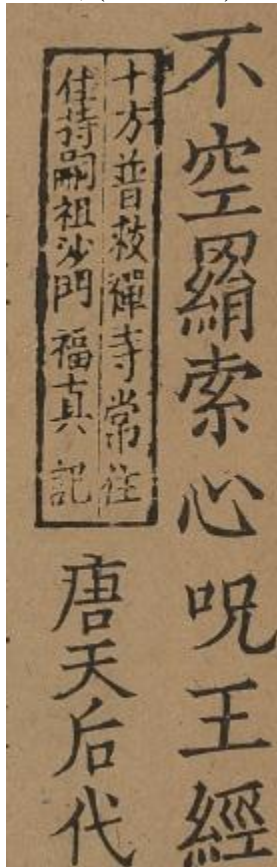 不空羂索心呪王經
十方普救禪寺常住
住持嗣祖沙門福真記
唐天后代